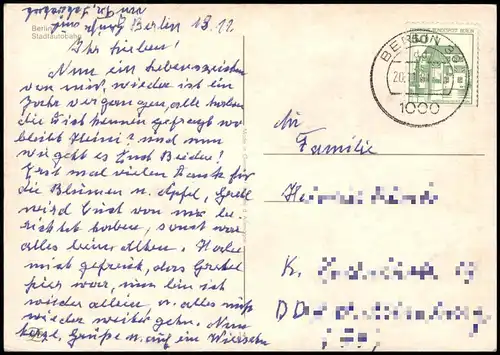 Berlin
Stadtautobahn
Berlin 18.12
Ihr Lieben!
Nun ein Lebenszeichen
von mir, wieder ist ein
Jahr vergangen, alle haben
die
bleibt Heini? und nun
wie geht es Euch Beiden!
Erst mal vielen Dank für
die Blumen u. Äpfel, Gretel
wird Euch von mir be-
richtet haben, sonst war
alles beim Alten. Habe
mich gefreut, das Gretel
hier war, nun bin ich
wieder allein, u. alles muß
wieder weiter gehn. Nun
Grüße u. auf ein Wiedersehn
An
Familie
He
K.
DD
BERLIN
1000
50
DEUTSCHE BUNDESPOST BERLIN